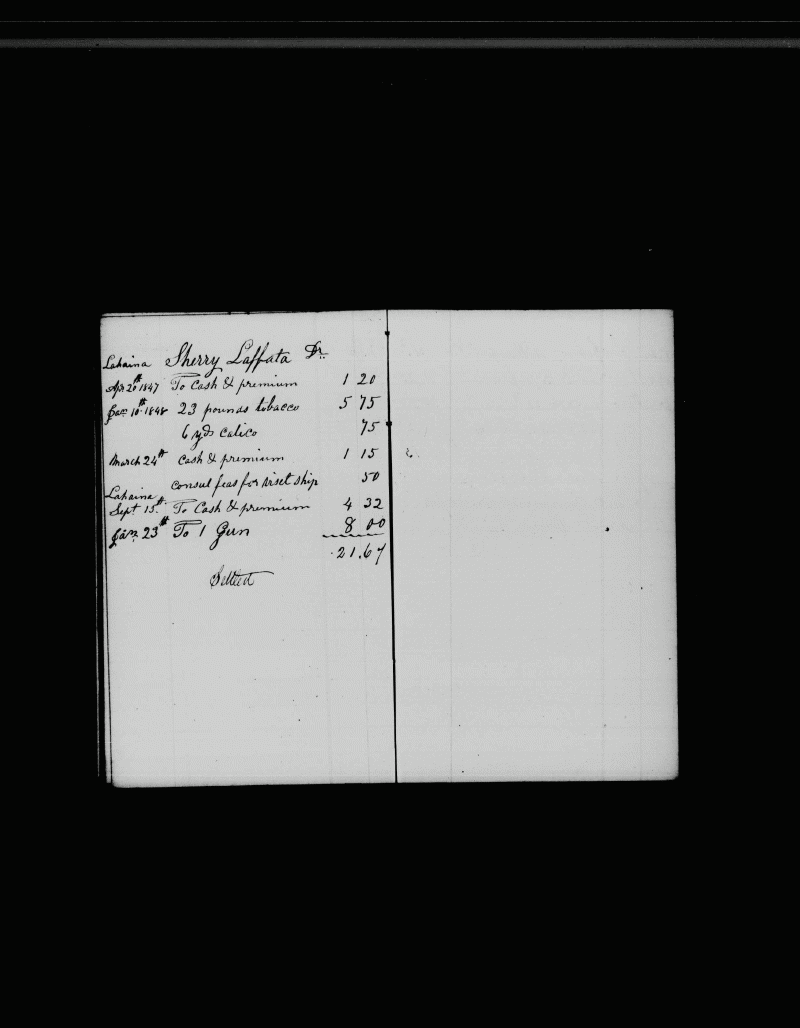 Lahaina Sherry Laffata Dr.
Apr 20th 1847 To Cash & premium 1 20
Jan. 10th 1848 23 pounds tobacco 5 75
6 yds calico 75
March 24th cash & premium 1 15
consul feas for viset ship 50
Lahaina
Sept. 15th To Cash & premium 4 32
Jan. 23th To 1 Gun 8 00
21.67
Settled